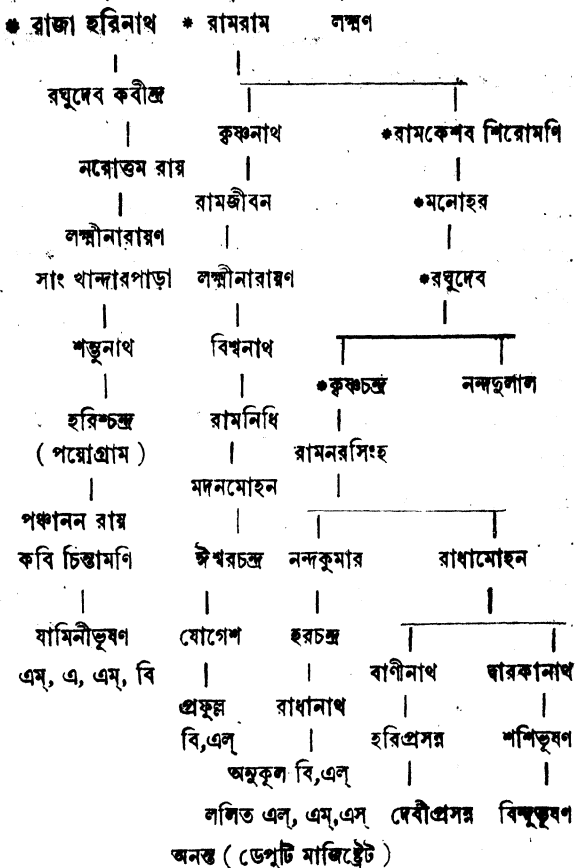 * রাজা হরিনাথ * রামরাম লক্ষ্মণ
রঘুদেব কবীন্দ্র
কৃষ্ণনাথ *রামকেশব শিরোমণি
নরোত্তম রায়
রামজীবন *মনোহর
লক্ষ্মীনারায়ণ
সাং খান্দারপাড়া লক্ষ্মীনারায়ণ *রঘুদেব
শম্ভুনাথ বিশ্বনাথ
*কৃষ্ণচন্দ্র নন্দদুলাল
হরিশ্চন্দ্র রামনিধি
( পয়োগ্রাম ) রামনরসিংহ
মদনমোহন
পঞ্চানন রায়
কবি চিন্তামণি ঈশ্বরচন্দ্র নন্দকুমার রাধামোহন
যামিনীভূষণ যোগেশ হরচন্দ্র
এম্, এ, এম্, বি বাণীনাথ দ্বারকানাথ
প্রফুল্ল রাধানাথ
বি,এল্ হরিপ্রসন্ন শশিভূষণ
অনুকূল বি,এল্
ললিত এল্, এম্,এস্ দেবীপ্রসন্ন বিন্দুভূষণ
অনন্ত ( ডেপুটি মাজিষ্ট্রেট )